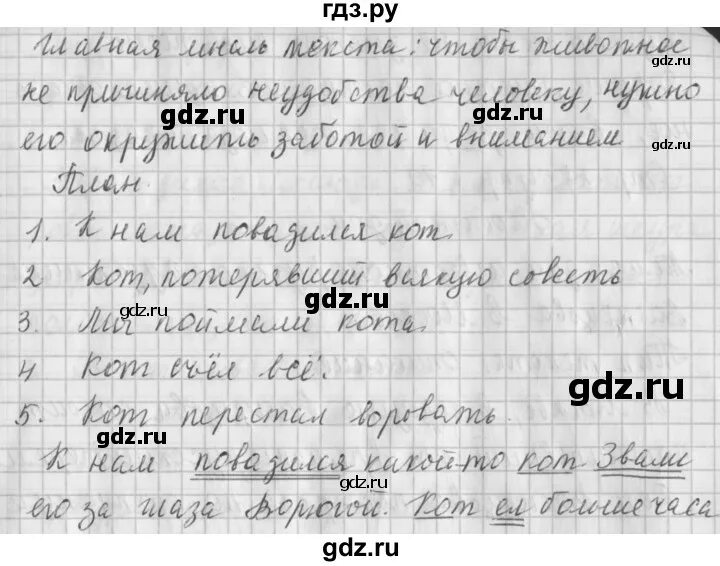 гдз.ру
Главная мысль текста: чтобы животное
gdz.ru
не причиняло неудобства человеку, нужно
gdz.ru
его окружить заботой и вниманием
gdz.ru
План.
1. К нам повадился кот.
gdz.ru
2 Кот, потерявший всякую совесть
gdz.ru
3. Мы поймали кота.
gdz.ru
4 Кот съел всё.
gdz.ru
5. Кот перестал воровать.
gdz.ru
К нам повадился какой-то кот Звали
gdz.ru
его за глаза Ворюгой. Кот ел больше часа
gdz.ru